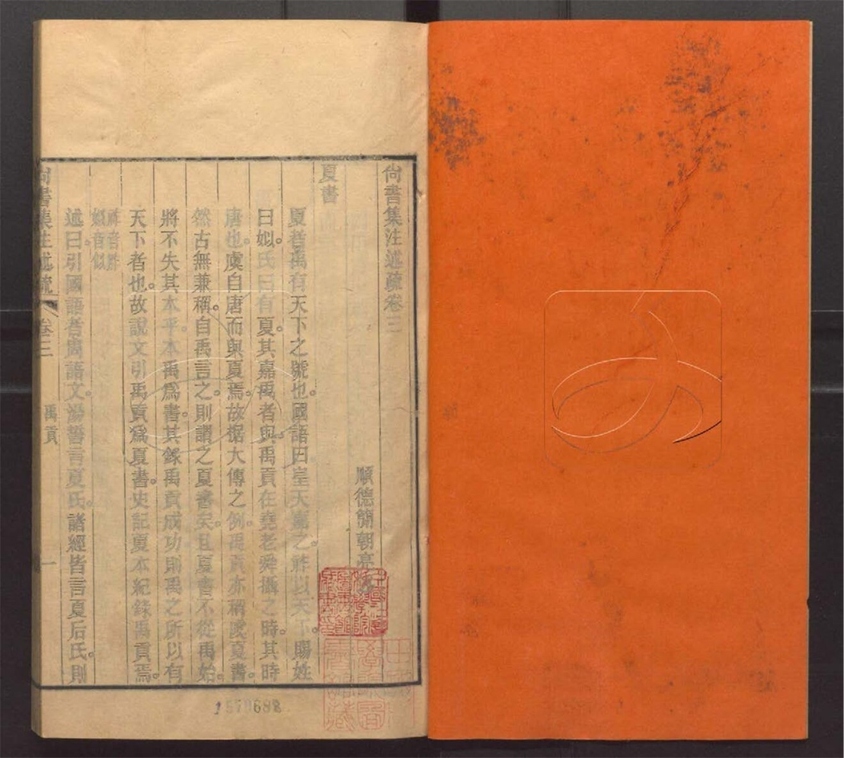 尚書集注述疏卷三
順德簡朝亮
夏書
夏者禹有天下之號也國語曰皇天嘉之祚以天下賜姓
曰姒氏曰有夏其嘉禹者與禹貢在堯老舜攝之時其時
唐也虞自唐而與夏焉故据大傳之例禹貢亦稱虞夏書
然古無兼稱自禹言之則謂之夏書矣且夏書不從禹始
將不失其本乎本禹爲書其錄禹貢成功則禹之所以有
天下者也故說文引禹貢爲夏書史記夏本紀錄禹貢焉
祚音胙
姒音似
述曰引國語者周語文湯誓言夏氏諸經皆言夏后氏則
尚書集注述疏 卷三 禹貢 一
1579682